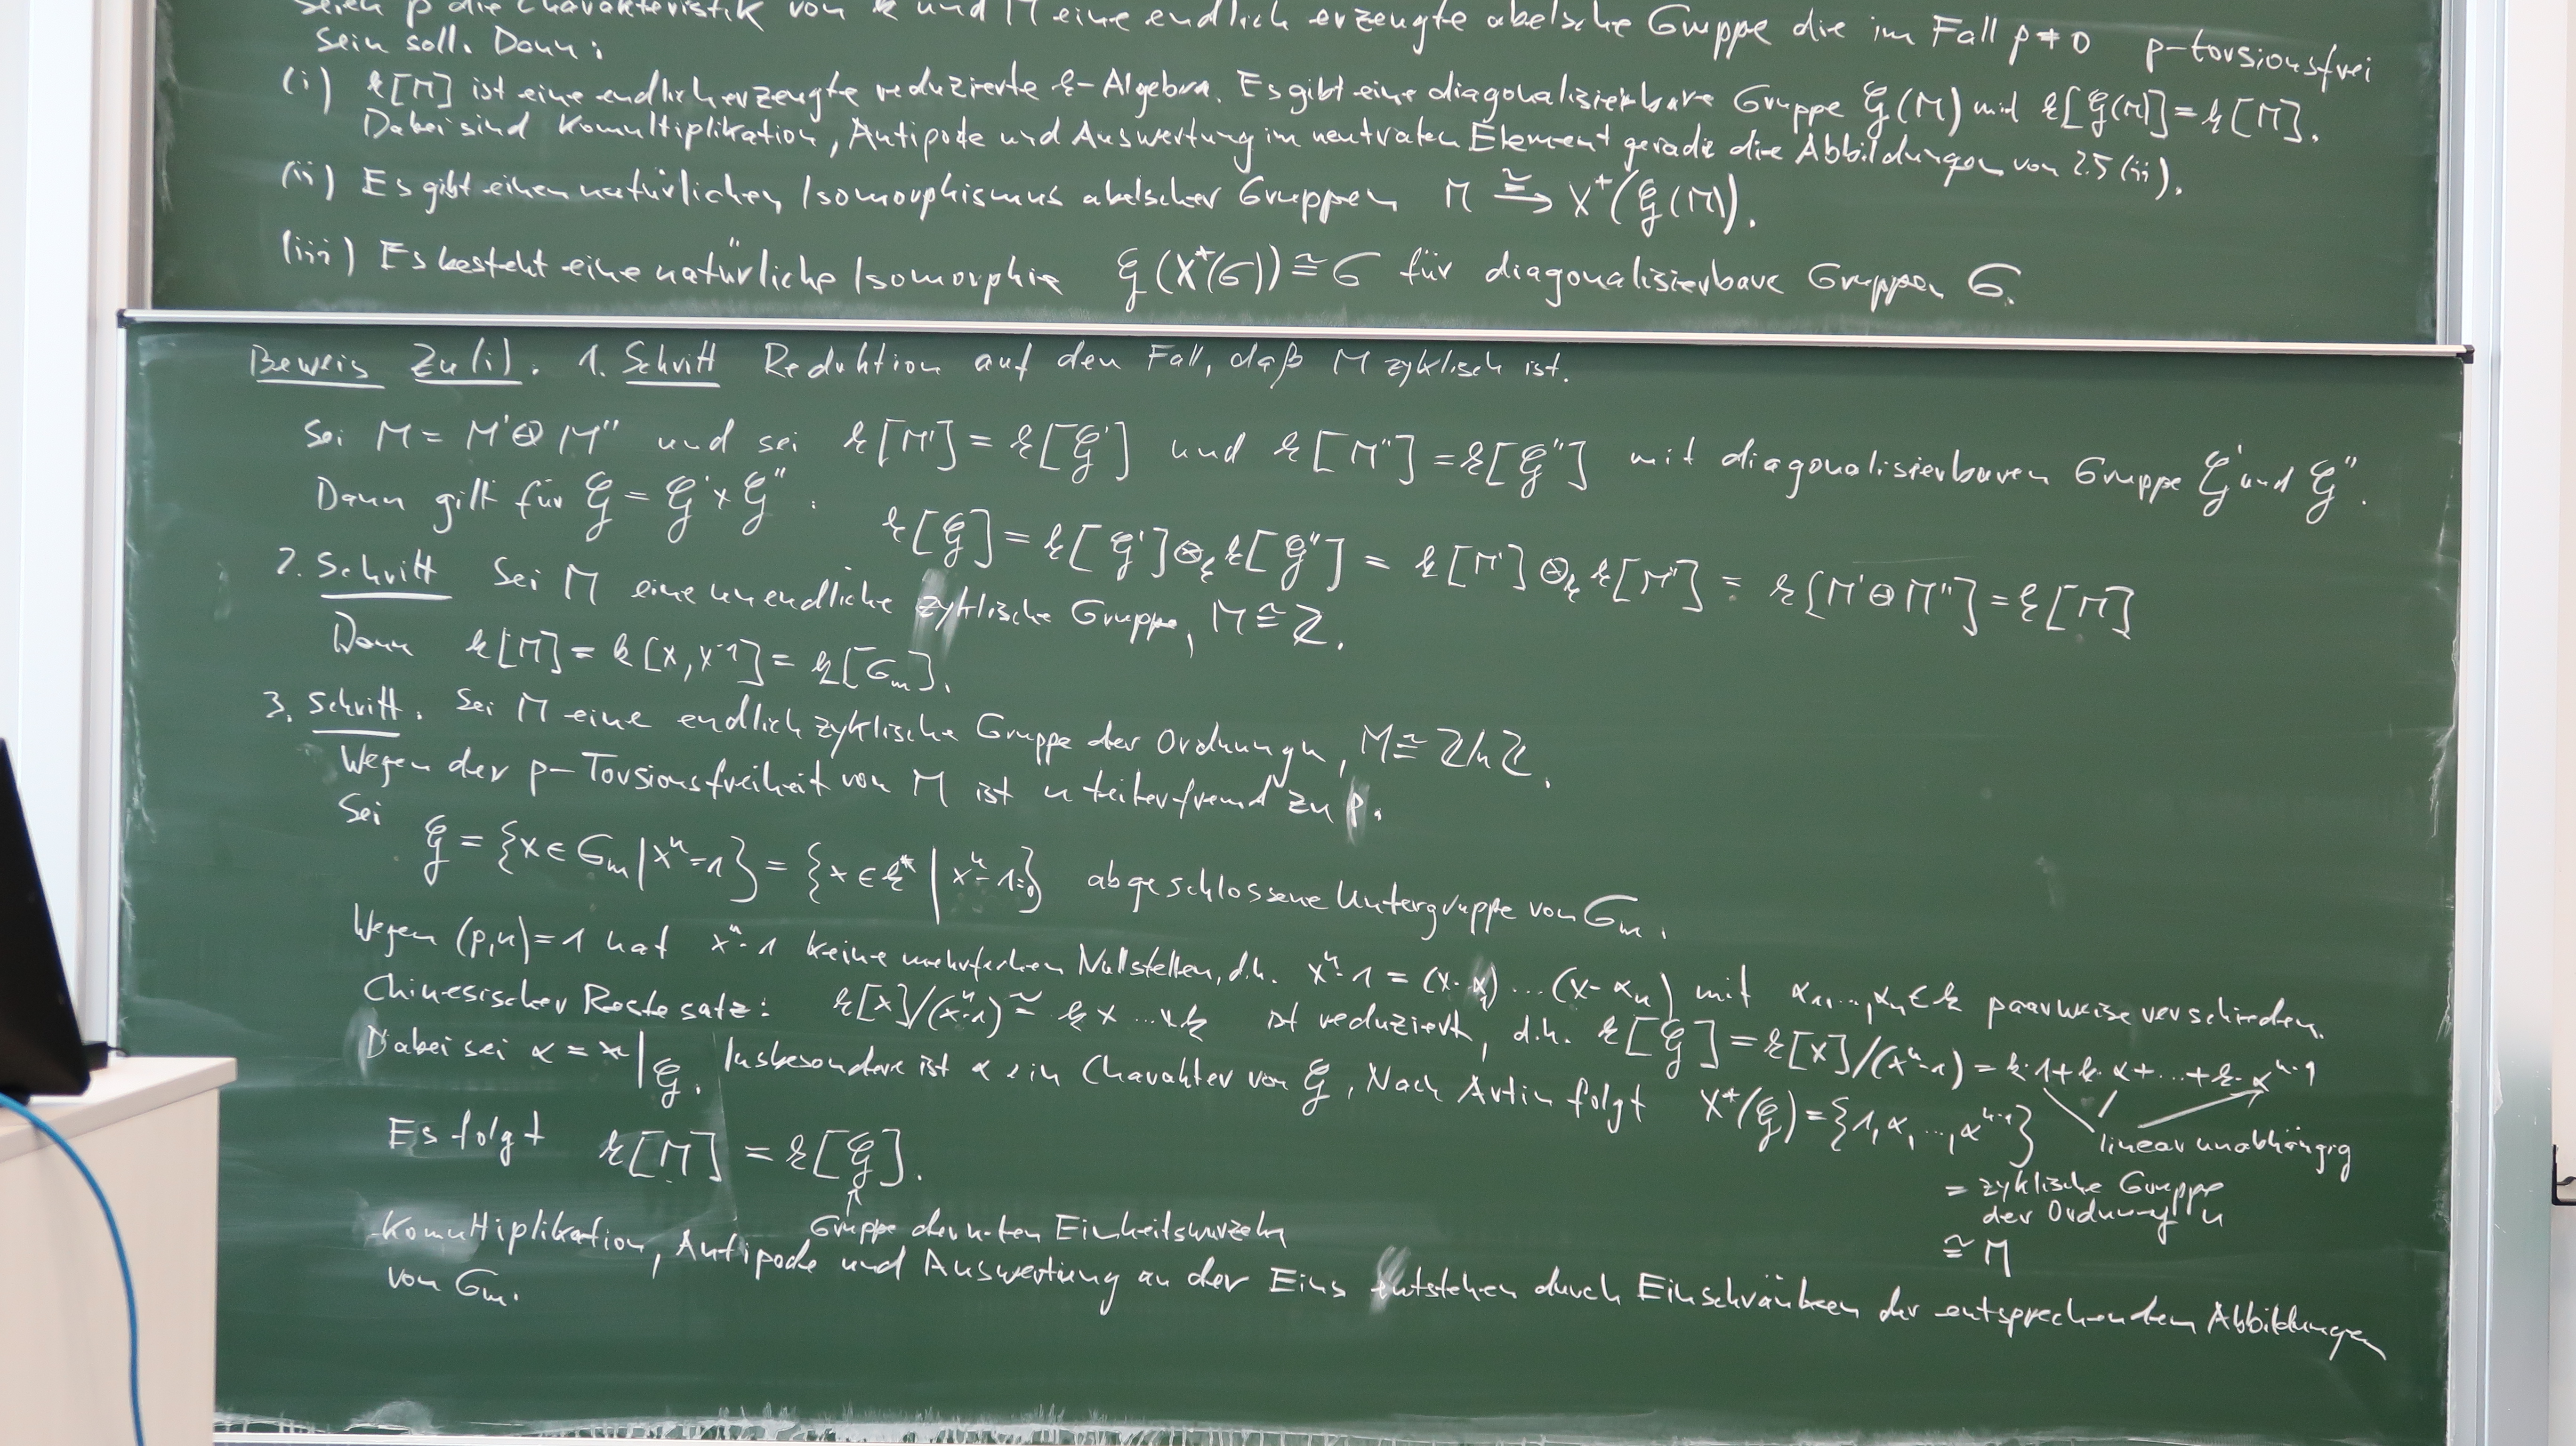 Seien p die Charakteristik von k und M eine endlich erzeugte abelsche Gruppe die im Fall p ≠ 0 p-torsionsfrei
sein soll. Dann:
(i) k[M] ist eine endlich erzeugte reduzierte k-Algebra. Es gibt eine diagonalisierbare Gruppe 𝒢(M) mit k[𝒢(M)] = k[M].
Dabei sind Komultiplikation, Antipode und Auswertung im neutralen Element gerade die Abbildungen von 2.5 (ii).
(ii) Es gibt einen natürlichen Isomorphismus abelscher Gruppen M ≅→ X*(𝒢(M)).
(iii) Es besteht eine natürliche Isomorphie 𝒢(X*(G)) ≅ G für diagonalisierbare Gruppen G.
Beweis Zu (i). 1. Schritt Reduktion auf den Fall, daß M zyklisch ist.
Sei M = M' ⊕ M'' und sei k[M'] = k[𝒢'] und k[M''] = k[𝒢''] mit diagonalisierbaren Gruppe 𝒢' und 𝒢''.
Dann gilt für 𝒢 = 𝒢' × 𝒢'' :
k[𝒢] = k[𝒢'] ⊗_k k[𝒢''] = k[M'] ⊗_k k[M''] = k[M' ⊕ M''] = k[M]
2. Schritt Sei M eine unendliche zyklische Gruppe, M ≅ ℤ.
Dann k[M] = k[x, x⁻¹] = k[G_m].
3. Schritt. Sei M eine endlich zyklische Gruppe der Ordnung n, M ≅ ℤ/nℤ.
Wegen der p-Torsionsfreiheit von M ist n teilerfremd zu p.
Sei
𝒢 = {x ∈ G_m | xⁿ = 1} = {x ∈ k* | xⁿ - 1 = 0} abgeschlossene Untergruppe von G_m.
Wegen (p,n) = 1 hat xⁿ - 1 keine mehrfachen Nullstellen, d.h. xⁿ - 1 = (x - α₁) ... (x - αₙ) mit α₁, ..., αₙ ∈ k paarweise verschieden.
Chinesischer Restesatz: k[x]/(xⁿ-1) ≅ k × ... × k ist reduziert, d.h. k[𝒢] = k[x]/(xⁿ-1) = k·1 + k·α + ... + k·αⁿ⁻¹
linear unabhängig
Dabei sei α = x|_𝒢. Insbesondere ist α ein Charakter von 𝒢, Nach Artin folgt X*(𝒢) = {1, α, ..., αⁿ⁻¹}
= zyklische Gruppe
der Ordnung n
≅ M
Es folgt k[M] = k[𝒢].
↑
Gruppe der n-ten Einheitswurzeln
Komultiplikation, Antipode und Auswertung an der Eins entstehen durch Einschränken der entsprechenden Abbildungen
von G_m.